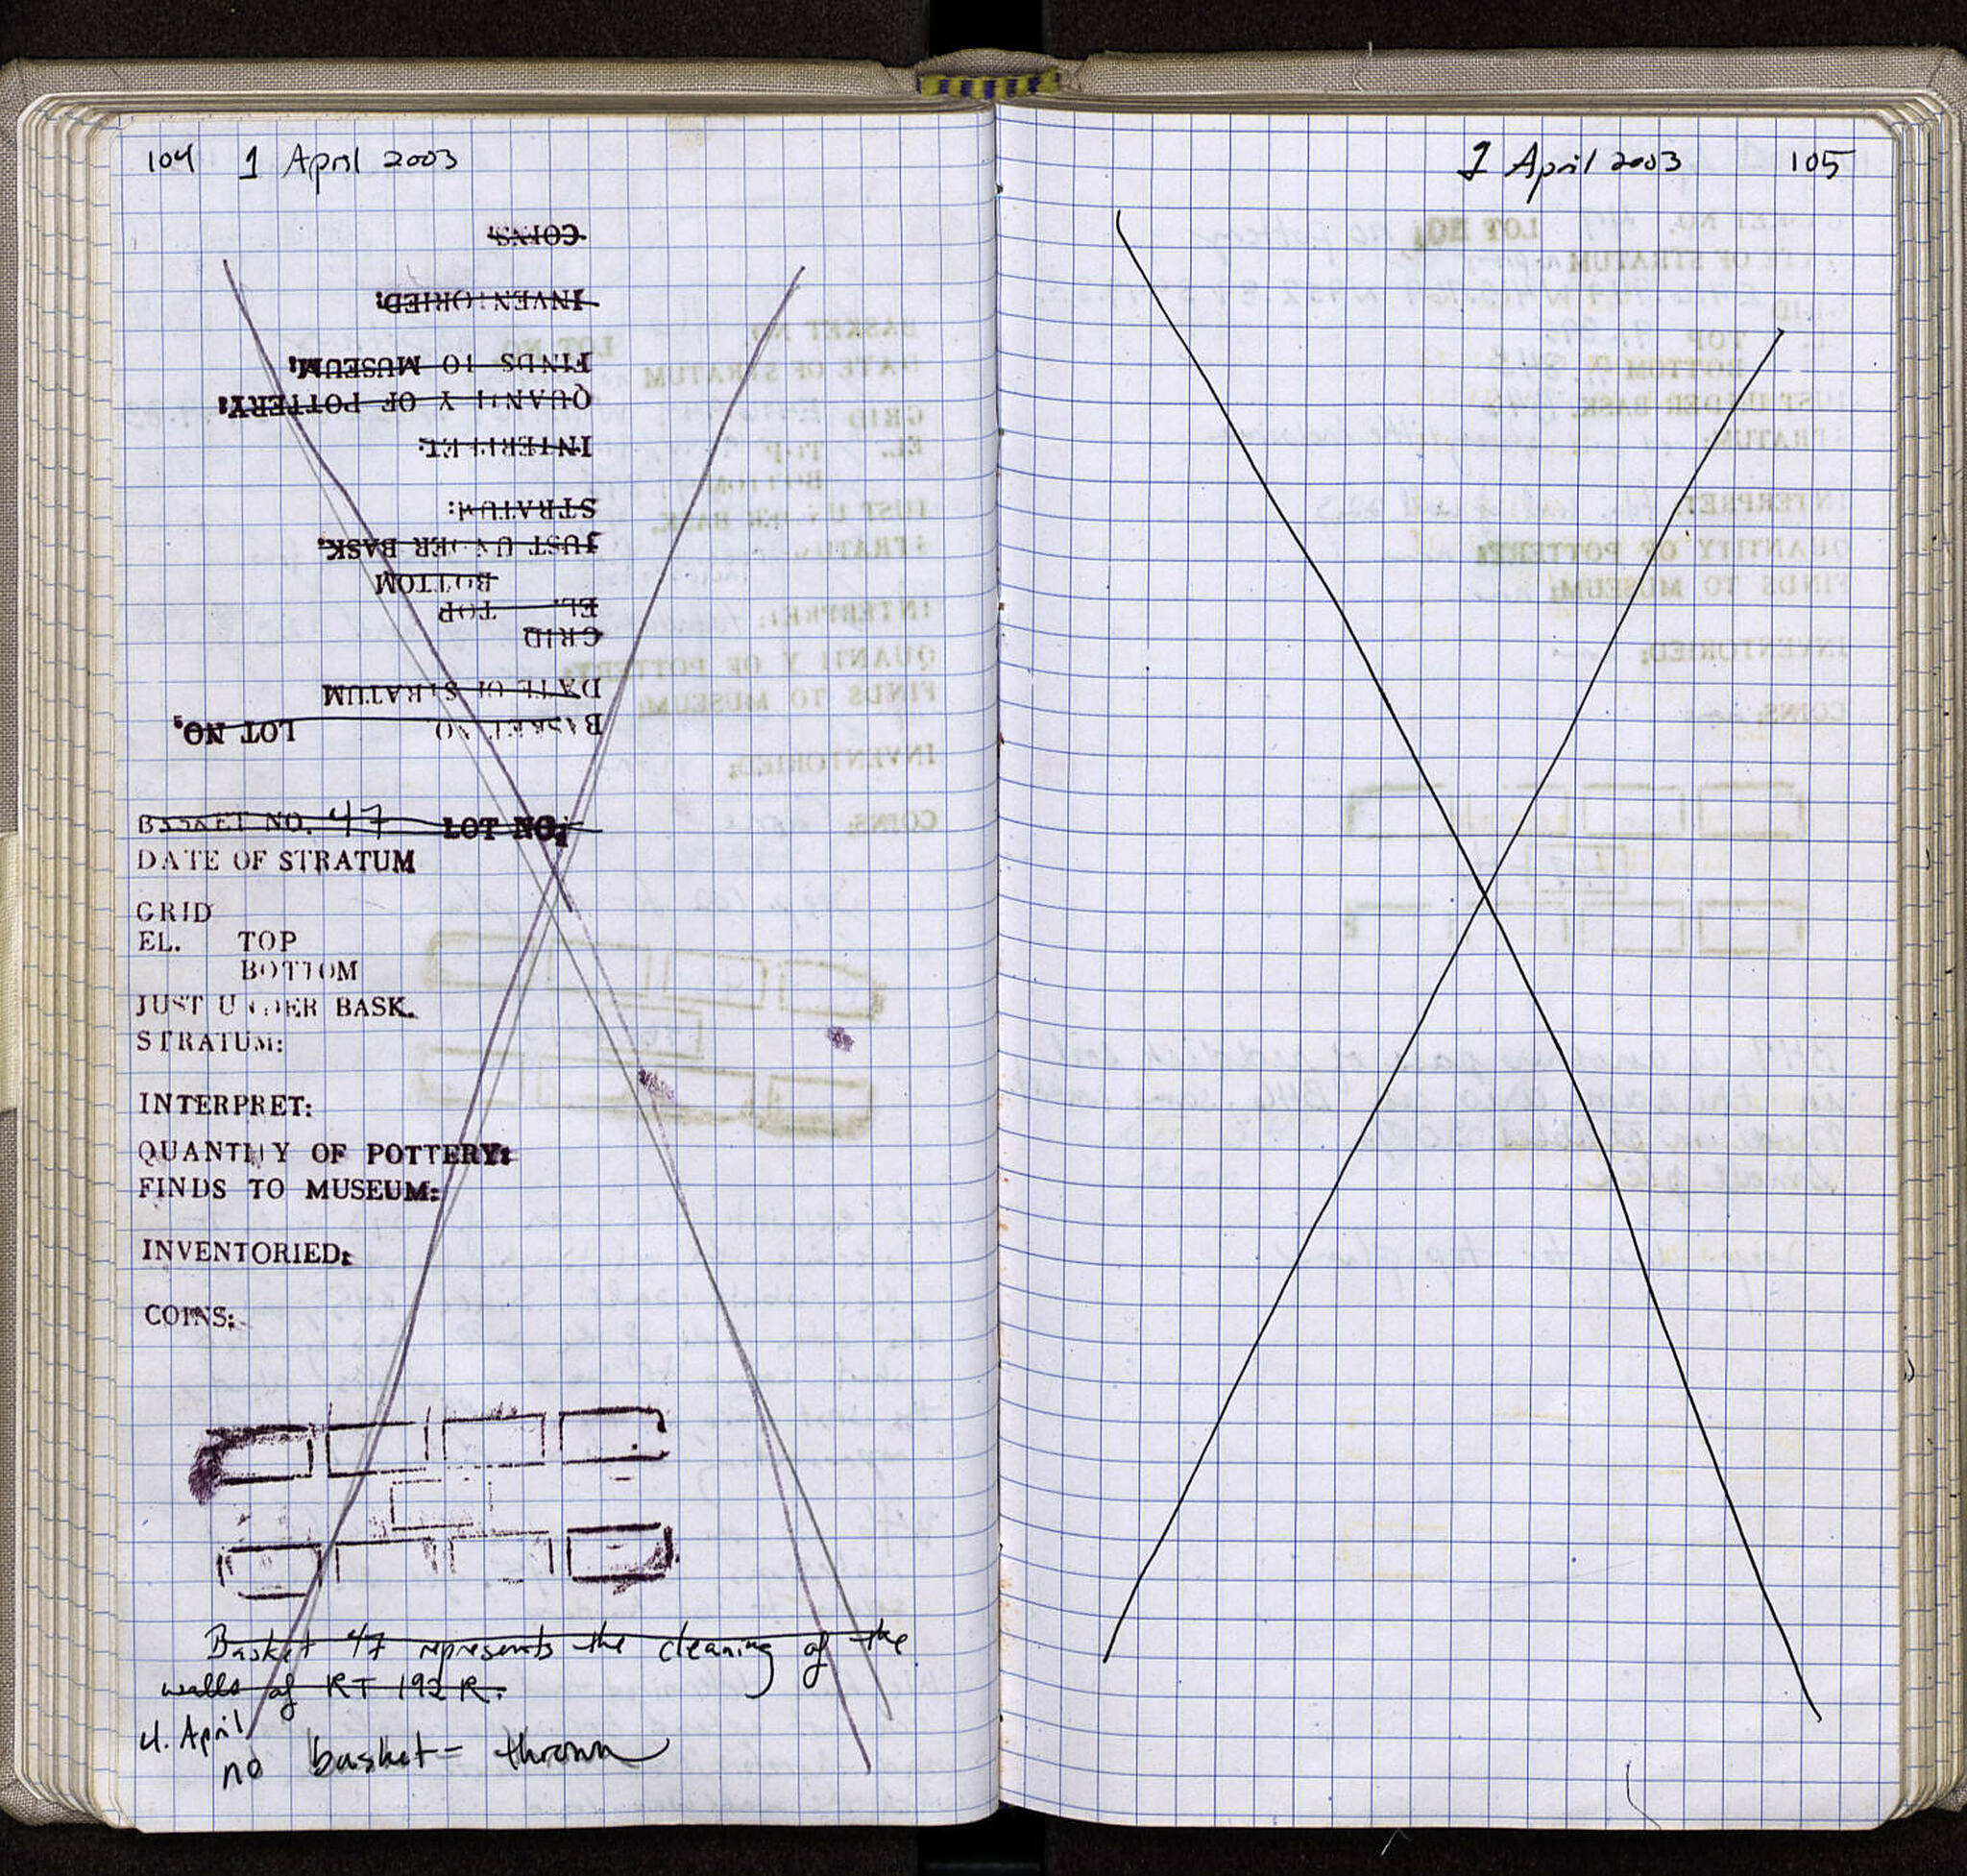 104 1 April 2003
COINS
INVENTORIED:
FINDS TO MUSEUM:
QUANTITY OF POTTERY:
INTERPRET:
STRATUM:
JUST UNDER BASK.
BOTTOM
EL. TOP
GRID
DATE OF STRATUM
BASKET NO. LOT NO.
BASKET NO. 47 LOT NO.
DATE OF STRATUM
GRID
EL. TOP
BOTTOM
JUST UNDER BASK.
STRATUM:
INTERPRET:
QUANTITY OF POTTERY:
FINDS TO MUSEUM:
INVENTORIED:
COINS:
Basket 47 represents the cleaning of the
walls of RT 192 R.
4. April
no basket = thrown
1 April 2003 105